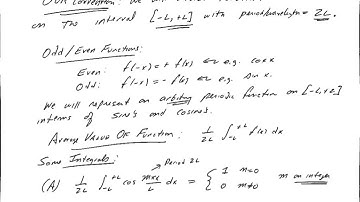 Our Convention: We will
on the interval [-L,+L] with period/wavelength = 2L.
Odd/Even Functions:
Even: f(-x) = + f(x) e.g. cos x
Odd: f(-x) = - f(x) e.g. sin x.
We will represent an arbitrary periodic function on [-L,+L]
in terms of sine's and cosines.
Average Value Of Function: 1/2L ∫_{-L}^{+L} f(x) dx
Some Integrals:
Period 2L
(A) 1/2L ∫_{-L}^{+L} cos mπx/L dx = { 1 m=0 m an integer
0 m≠0